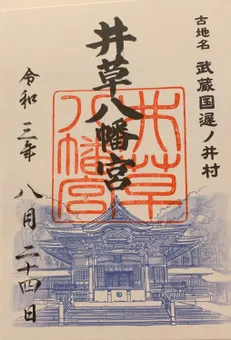 古地名 武蔵国遅ノ井村
井草八幡宮
井草
八幡宮
令和三年 八月二十四日